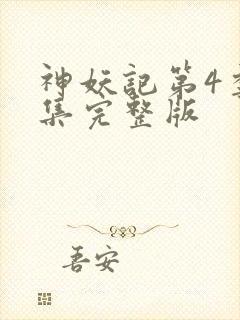 神妖記第4
集完整版
吾安